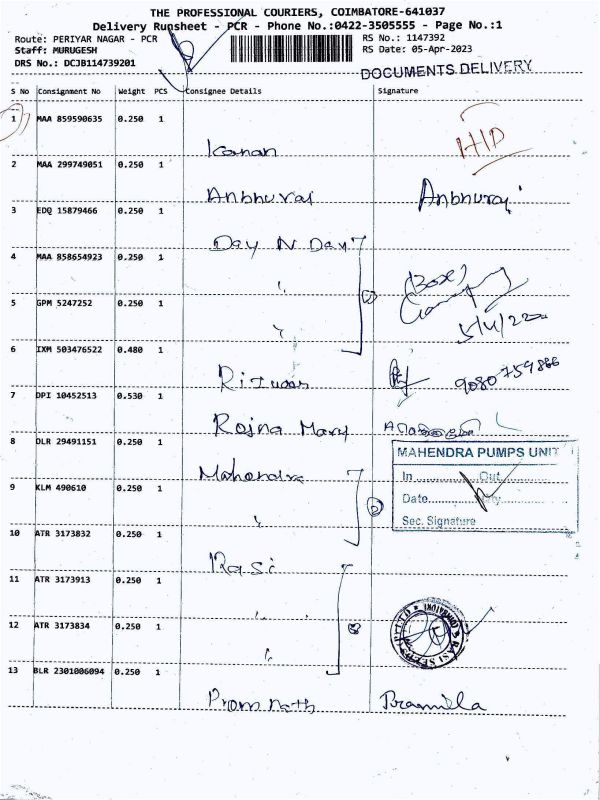 THE PROFESSIONAL COURIERS, COIMBATORE-641037
Delivery Runsheet - PCR - Phone No.:0422-3505555 - Page No.:1
Route: PERIYAR NAGAR - PCR RS No.: 1147392
Staff: MURUGESH RS Date: 05-Apr-2023
DRS No.: DCJB114739201
DOCUMENTS DELIVERY
S No Consignment No Weight PCS Consignee Details Signature
1 MAA 859590635 0.250 1
Kanan HID
2 MAA 299749051 0.250 1
Anbhuraj Anbhuraj
3 EDQ 15879466 0.250 1
Day N Day
4 MAA 858654923 0.250 1
" (Box)
5 GPM 5247252 0.250 1
"
6 IXM 503476522 0.480 1
9080759866
7 DPI 10452513 0.530 1
Rojna Mary
8 DLR 29491151 0.250 1
Mahendra MAHENDRA PUMPS UNIT
In Out
9 KLM 490610 0.250 1
" Date
Sec. Signature
10 ATR 3173832 0.250 1
Rasi
11 ATR 3173913 0.250 1
"
12 ATR 3173834 0.250 1
" RASI SEEDS (P) LTD COIMBATORE
13 BLR 2301006094 0.250 1
Prem nath Pramilla